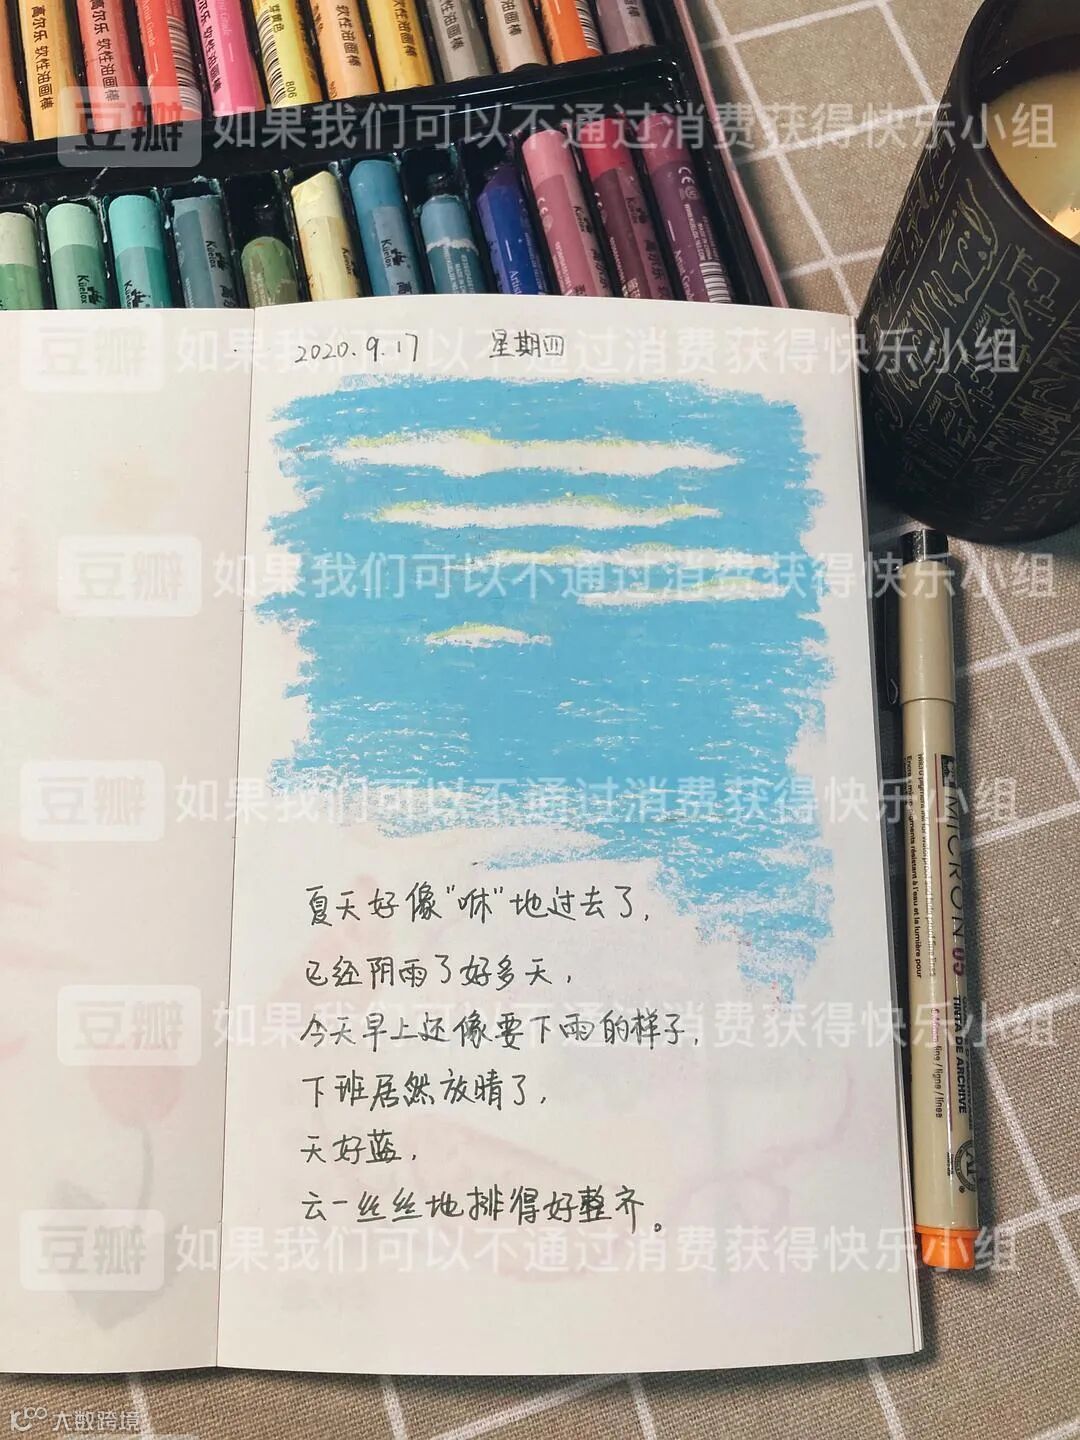 高尔乐 软性油画棒
豆瓣 如果我们可以不通过消费获得快乐小组
Kuelox
2020.9.17 星期四
豆瓣 如果我们可以不通过消费获得快乐小组
豆瓣 如果我们可以不通过消费获得快乐小组
豆瓣 如果我们可以不通过消费获得快乐小组
夏天好像“咻”地过去了,
已经阴雨了好多天,
今天早上还像要下雨的样子,
豆瓣 如果我们可以不通过消费获得快乐小组
下班居然放晴了,
天好蓝,
云一丝丝地排得好整齐。
豆瓣 如果我们可以不通过消费获得快乐小组
MICRON 05
TINTA DE ARCHIVE
大数跨境